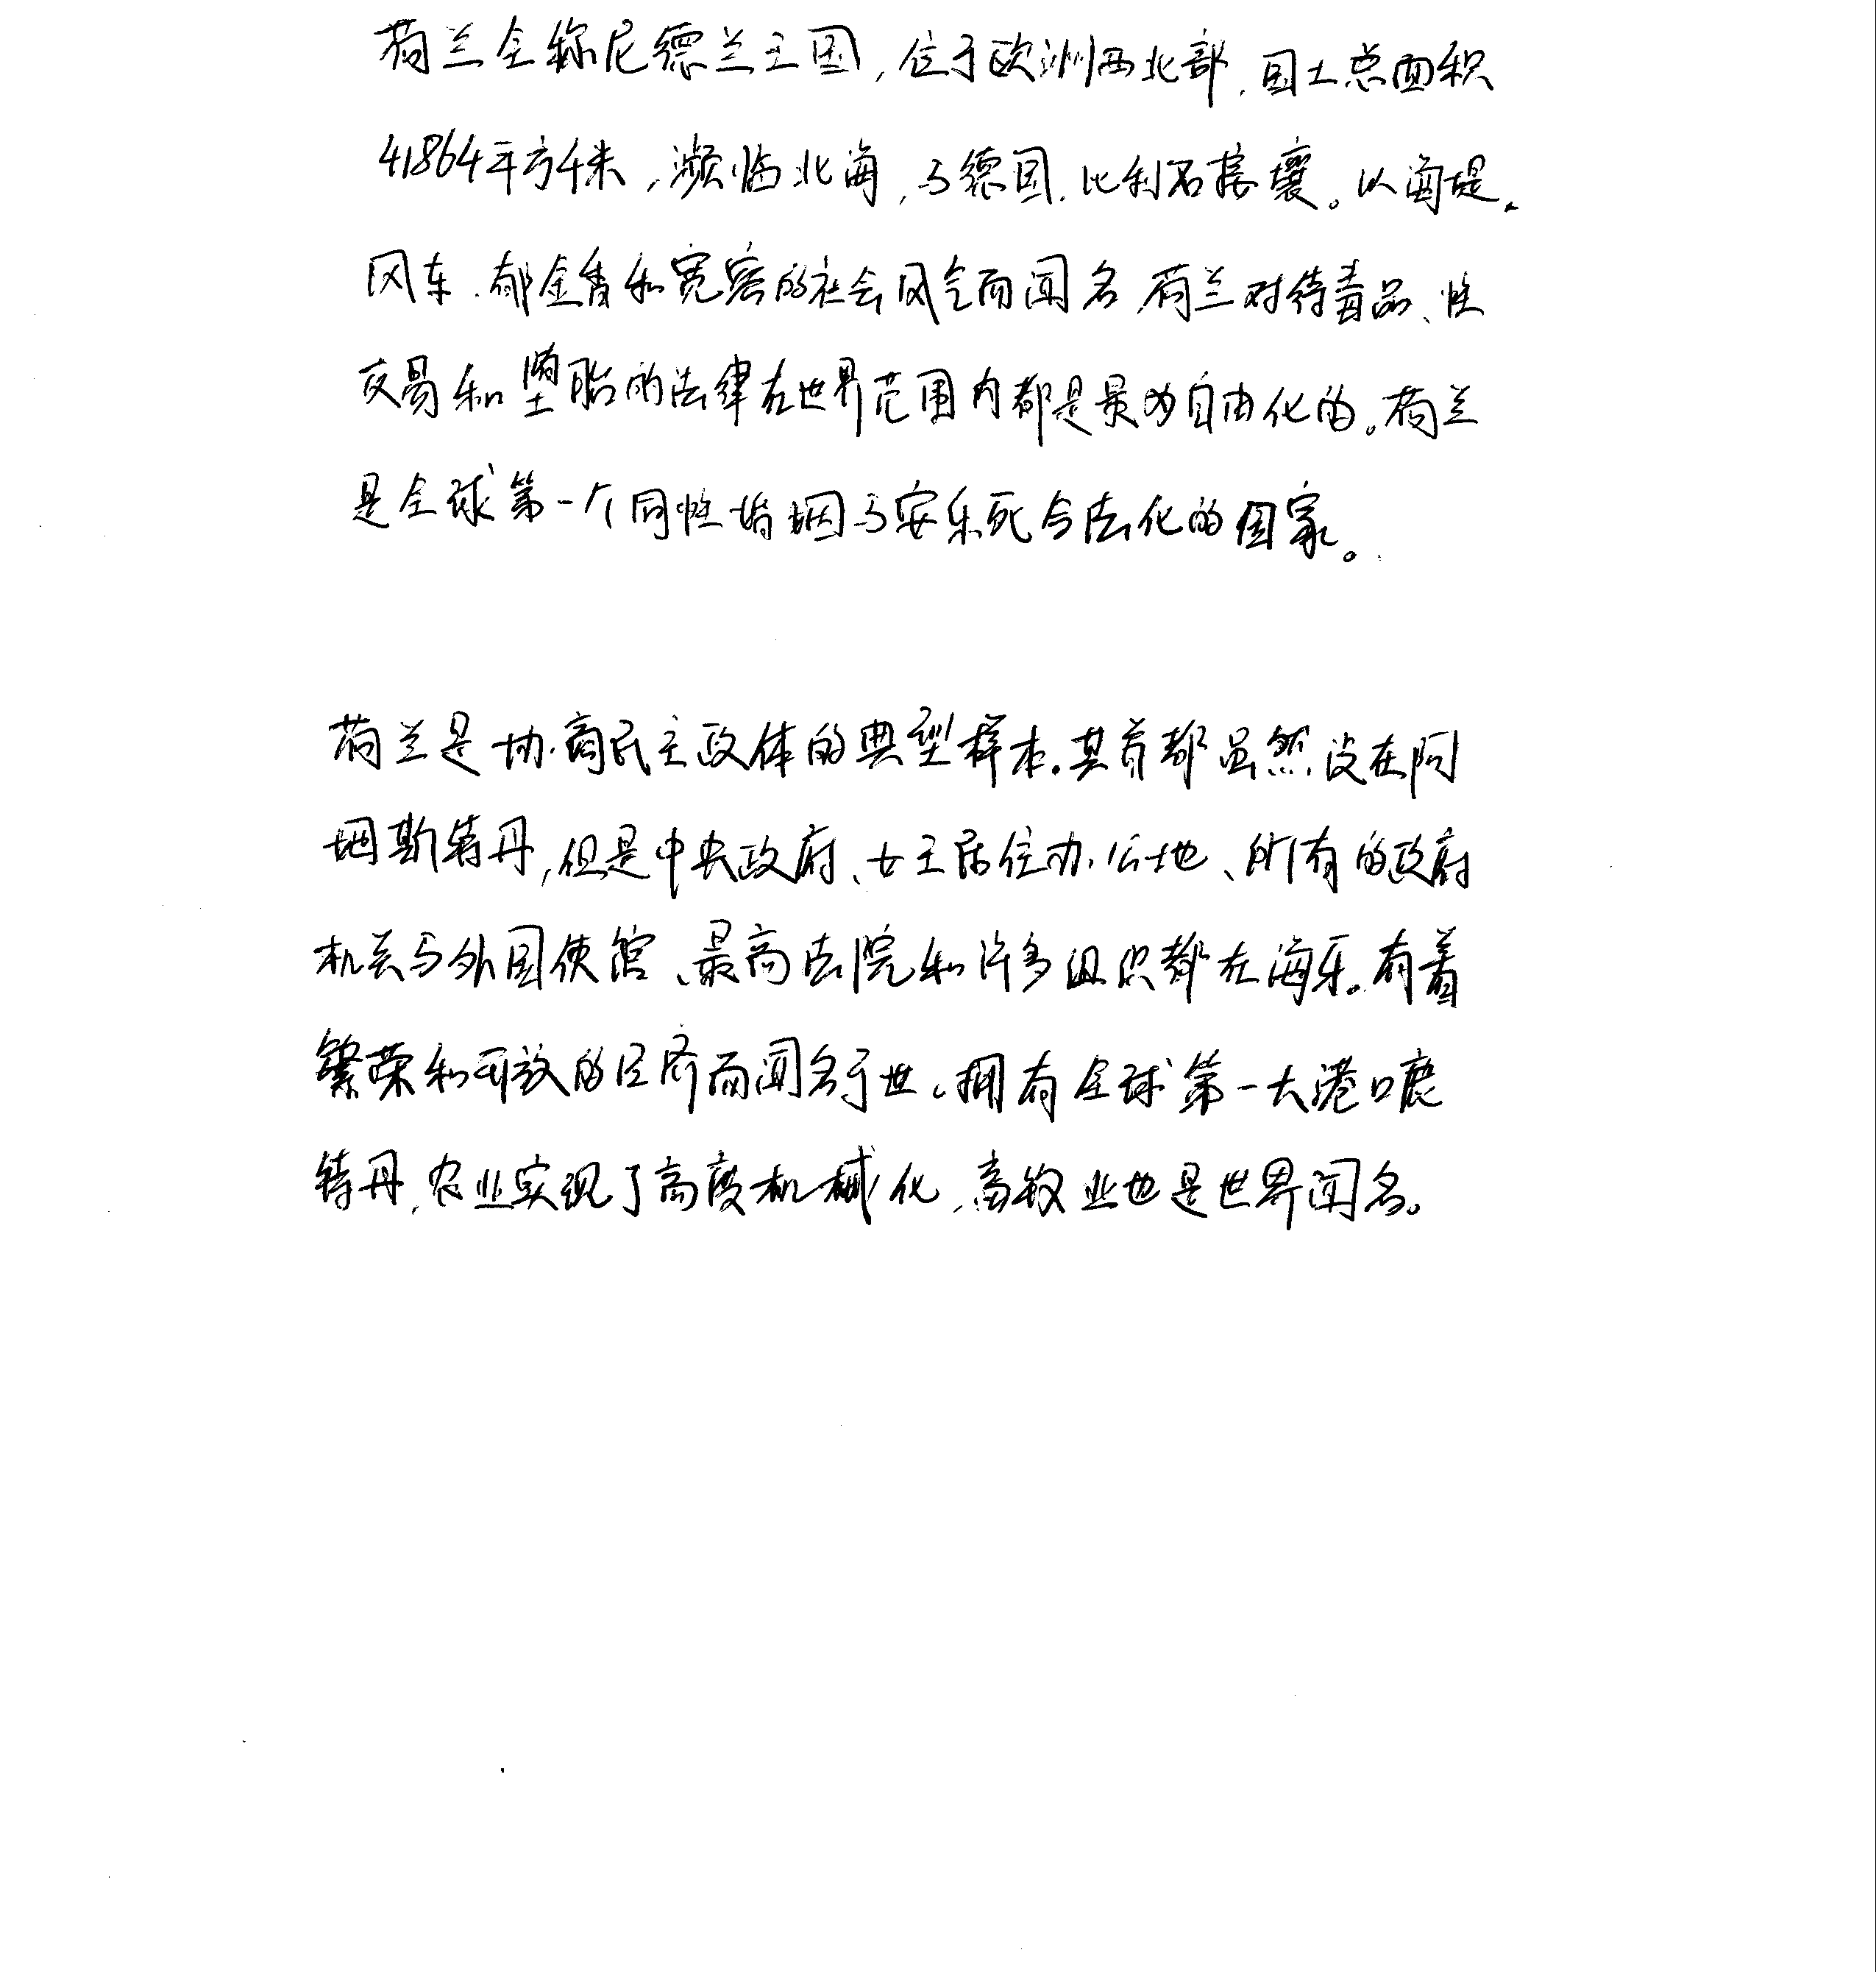 荷兰全称尼德兰王国,位于欧洲西北部,国土总面积
41864平方千米,濒临北海,与德国、比利时接壤。以海堤、
风车、郁金香和宽容的社会风气而闻名,荷兰对待毒品、性
交易和堕胎的法律在世界范围内都是最为自由化的。荷兰
是全球第一个同性婚姻与安乐死合法化的国家。
荷兰是协商民主政体的典型样本。其首都虽然设在阿
姆斯特丹,但是中央政府、女王居住办公地、所有的政府
机关与外国使馆、最高法院和许多组织都在海牙。有着
繁荣和开放的经济而闻名于世。拥有全球第一大港口鹿
特丹,农业实现了高度机械化,畜牧业也是世界闻名。